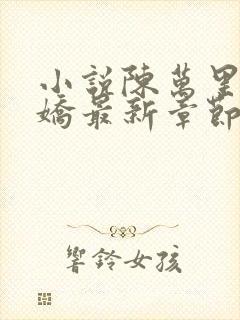 小說陳萬里
嬌最新章節
響鈴女孩